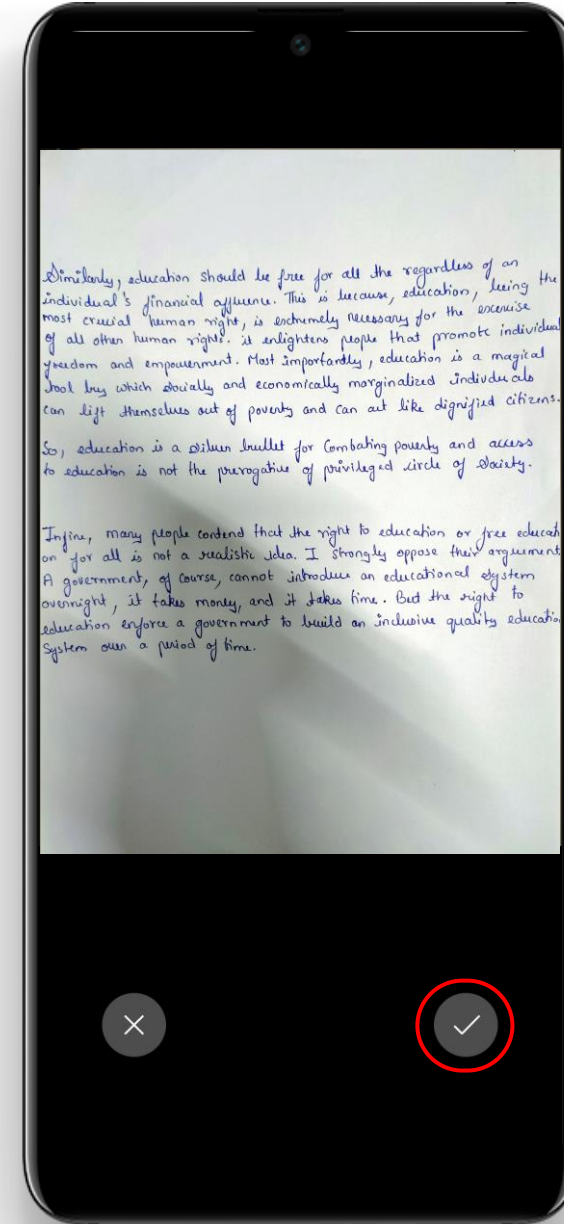 Similarly, education should be free for all the regardless of an
individual's financial affluence. This is because, education, being the
most crucial human right, is extremely necessary for the exercise
of all other human rights. it enlightens people that promote individual
freedom and empowerment. Most importantly, education is a magical
tool by which socially and economically marginalized individuals
can lift themselves out of poverty and can act like dignified citizens.
So, education is a silver bullet for Combating poverty and access
to education is not the prerogative of privileged circle of society.
Infine, many people contend that the right to education or free educati
on for all is not a realistic idea. I strongly oppose their argument
A government, of course, cannot introduce an educational system
overnight, it takes money, and it takes time. But the right to
education enforce a government to build an inclusive quality educatio
System over a period of time.